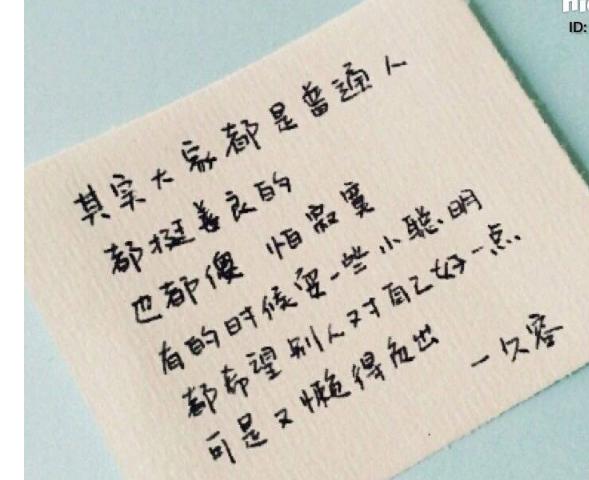 ID:
其实大家都是普通人
都挺善良的
也都傻 怕寂寞
有的时候耍一些小聪明
都希望别人对自己好一点
可是又懒得付出
一久容